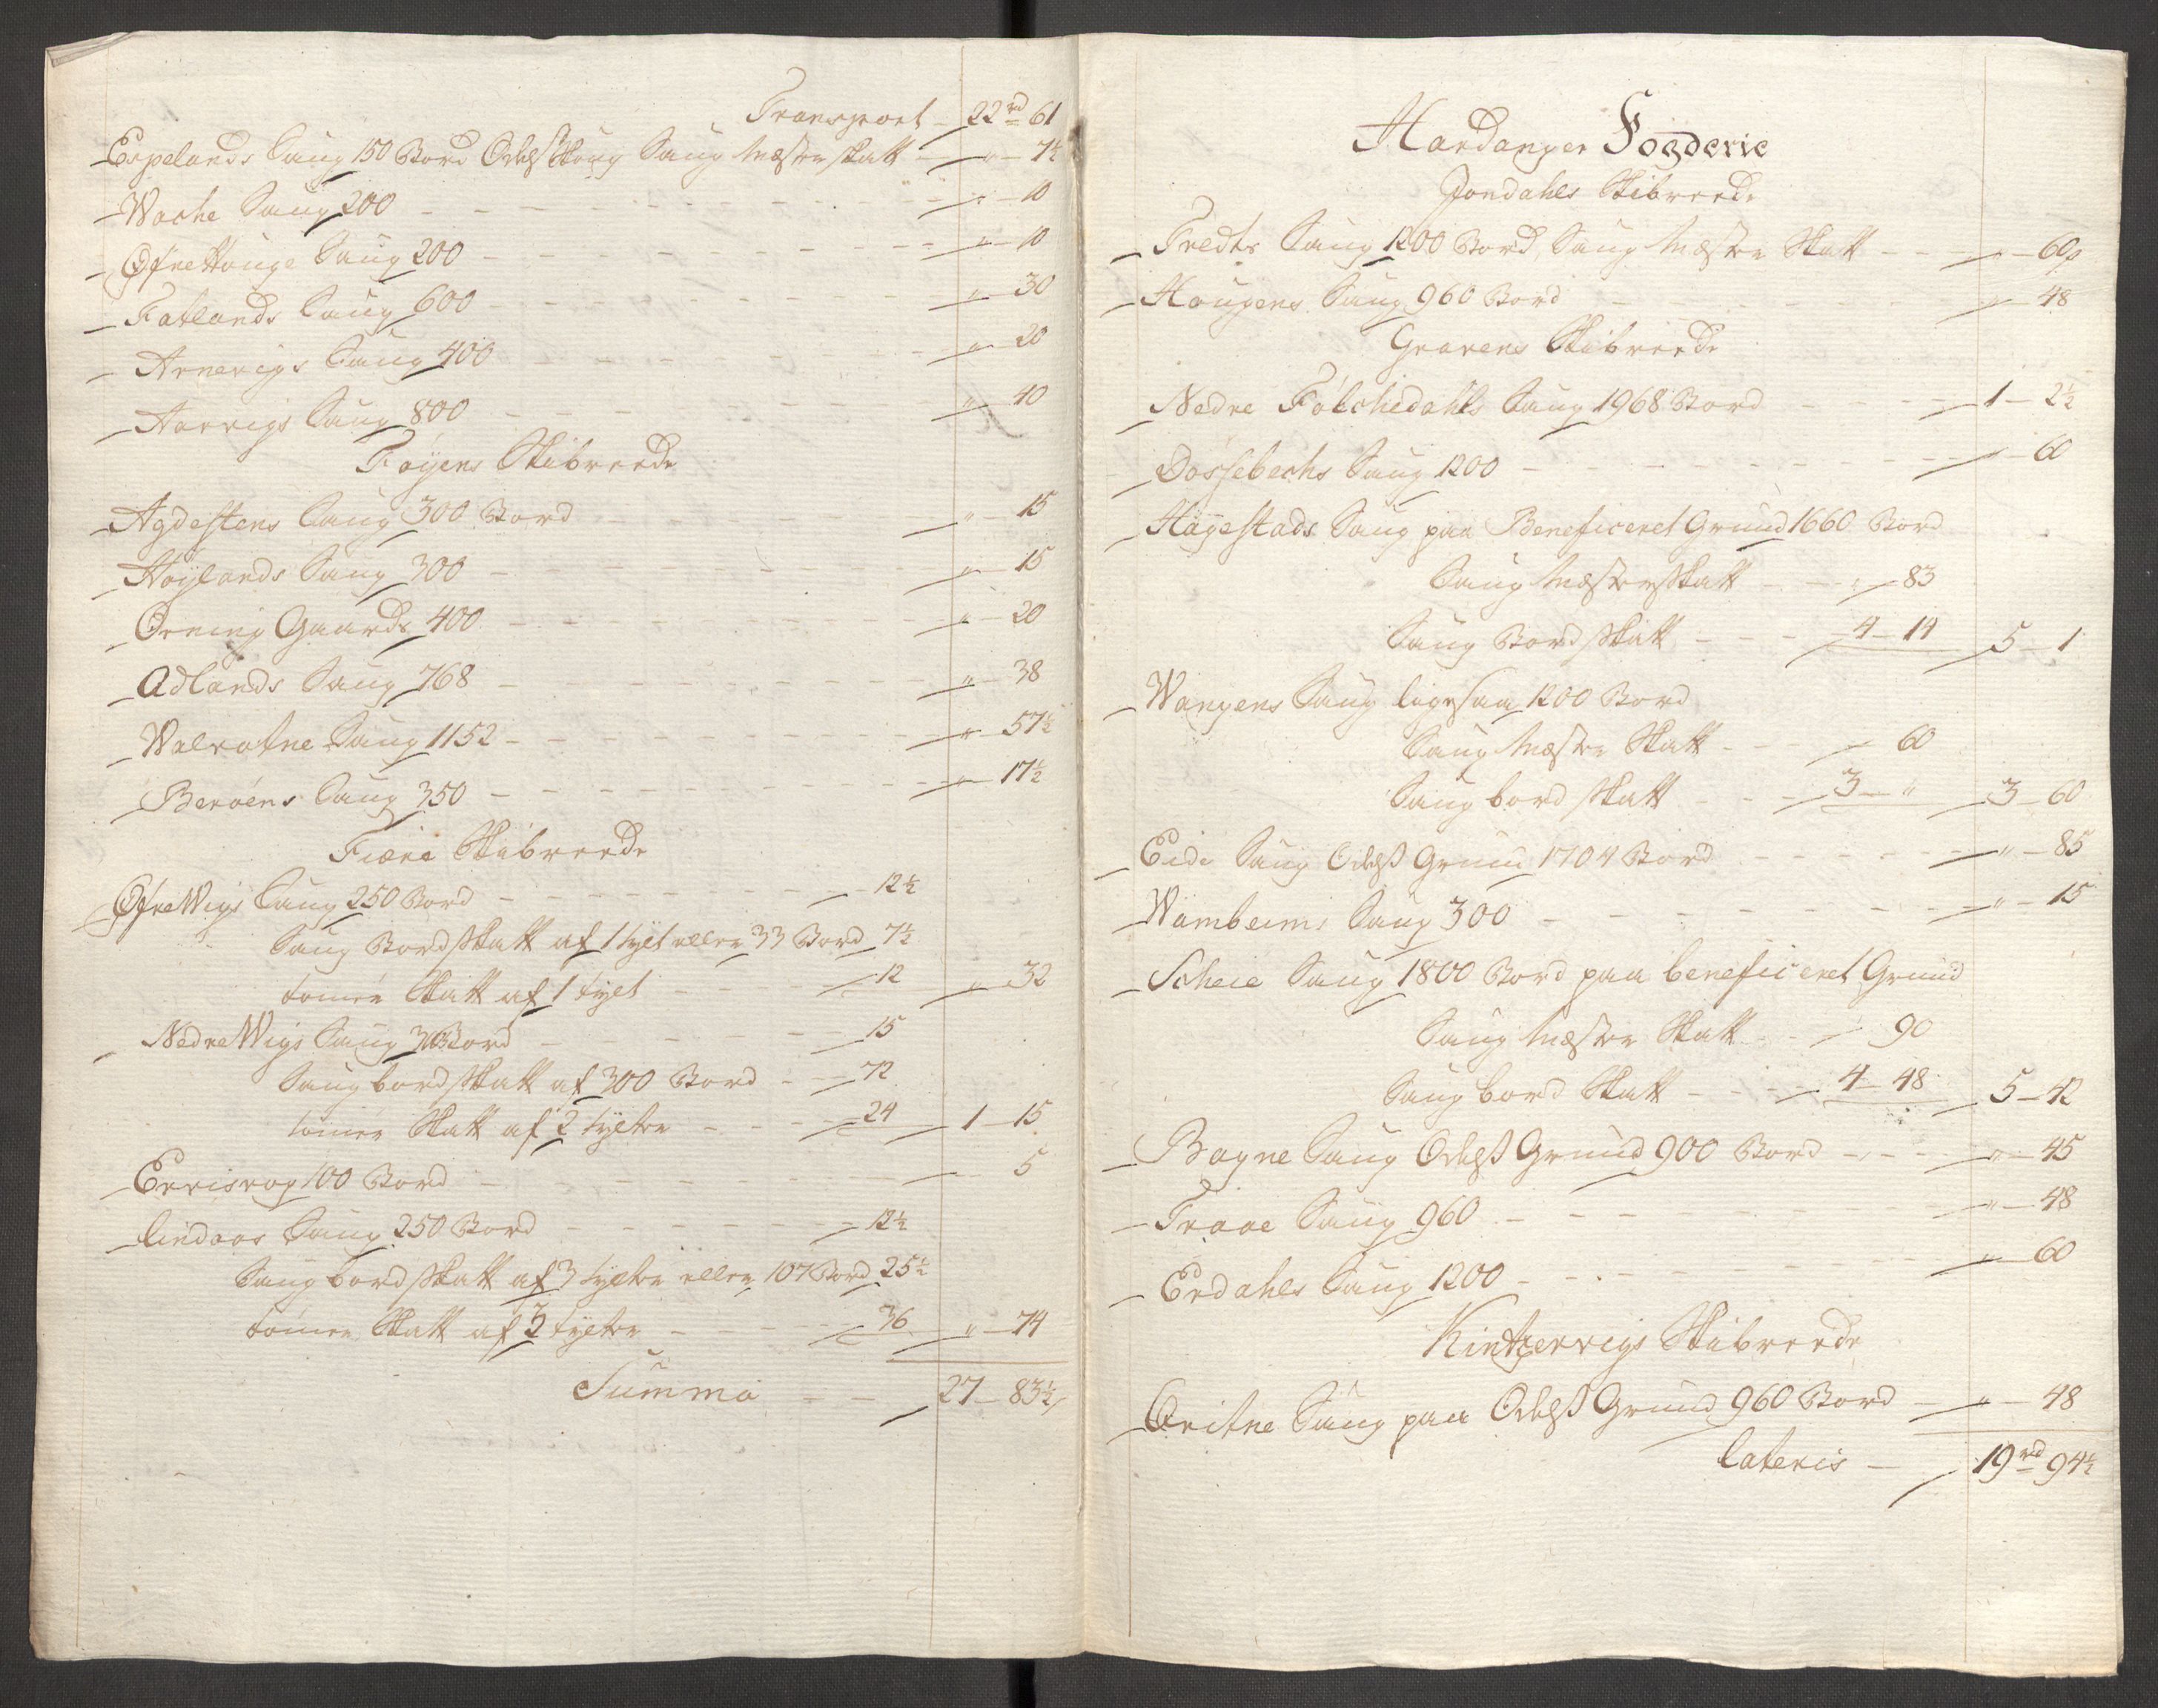 Transport – 22 rd 61
Espelands Saug 150 Bord Odelsskoug Saug Mester skatt – " – 7½
Wache Saug 200 – " – 10
Øfre Houge Saug 200 – " – 10
Fatlands Saug 600 – " – 30
Arnevigs Saug 400 – " – 20
Aarvigs Saug 800 – " – 40
Føyens Skibreede
Agdestens Saug 300 Bord – " – 15
Høylands Saug 300 – " – 15
Ørning Gaards 400 – " – 20
Adlands Saug 768 – " – 38
Walvatne Saug 1152 – " – 57½
Berøens Saug 350 – " – 17½
Fiære Skibreede
Øfre Wigs Saug 250 Bord – 12½
Saug Bord skatt af 1 tylt eller 33 Bord 7½
tømer Skatt af 1 tylt – 12 " – 32
Nedre Wigs Saug 300 Bord – 15
Saug bord skatt af 300 Bord – 72
tømer Skatt af 2 tylter – 24 1 – 15
100 Bord – 5
Lindaas Saug 250 Bord – 12½
Saug bord skatt af 3 tylter eller 107 Bord 25½
tømer Skatt af 3 tylter – 36 " – 74
Summa – 27 – 83½
Hardanger Fogderie
Jondahls Skibreede
Tredts Saug 1200 Bord, Saug Mester Skatt – " – 60
Hougens Saug 960 Bord – " – 48
Gravens Skibreede
Nedre Følchedahls Saug 1968 Bord – 1 – 2½
Døssebechs Saug 1200 – " – 60
Hagestads Saug paa Beneficeret Grund 1660 Bord
Saug Mester skatt – " – 83
Saug Bord skatt – 4 – 14 5 – 1
Wangens Saug ligesaa 1200 Bord
Saug Mester Skatt – 60
Saug bord skatt – 3 – " 3 – 60
Eide Saug Odelss Grund 1704 Bord – " – 85
Wambeims Saug 300 – " – 15
Scheie Saug 1800 Bord paa beneficeret Grund
Saug Mester Skatt – 90
Saug bord Skatt – 4 – 48 5 – 42
Bagne Saug Odelss Grund 900 Bord – " – 45
Traae Saug 960 – " – 48
Erdahls Saug 1200 – " – 60
Kintzervigs Skibreede
Qvitne Saug paa Odelss Grund 960 Bord – " – 48
Lateris – 19 rd 94½